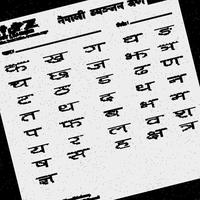 नेपाली व्यञ्जन वर्ण
क ख ग घ ङ
च छ ज झ ञ
ट ठ ड ढ ण
त थ द ध न
प फ ब भ म
य र ल व श
ष स ह क्ष त्र
ज्ञ